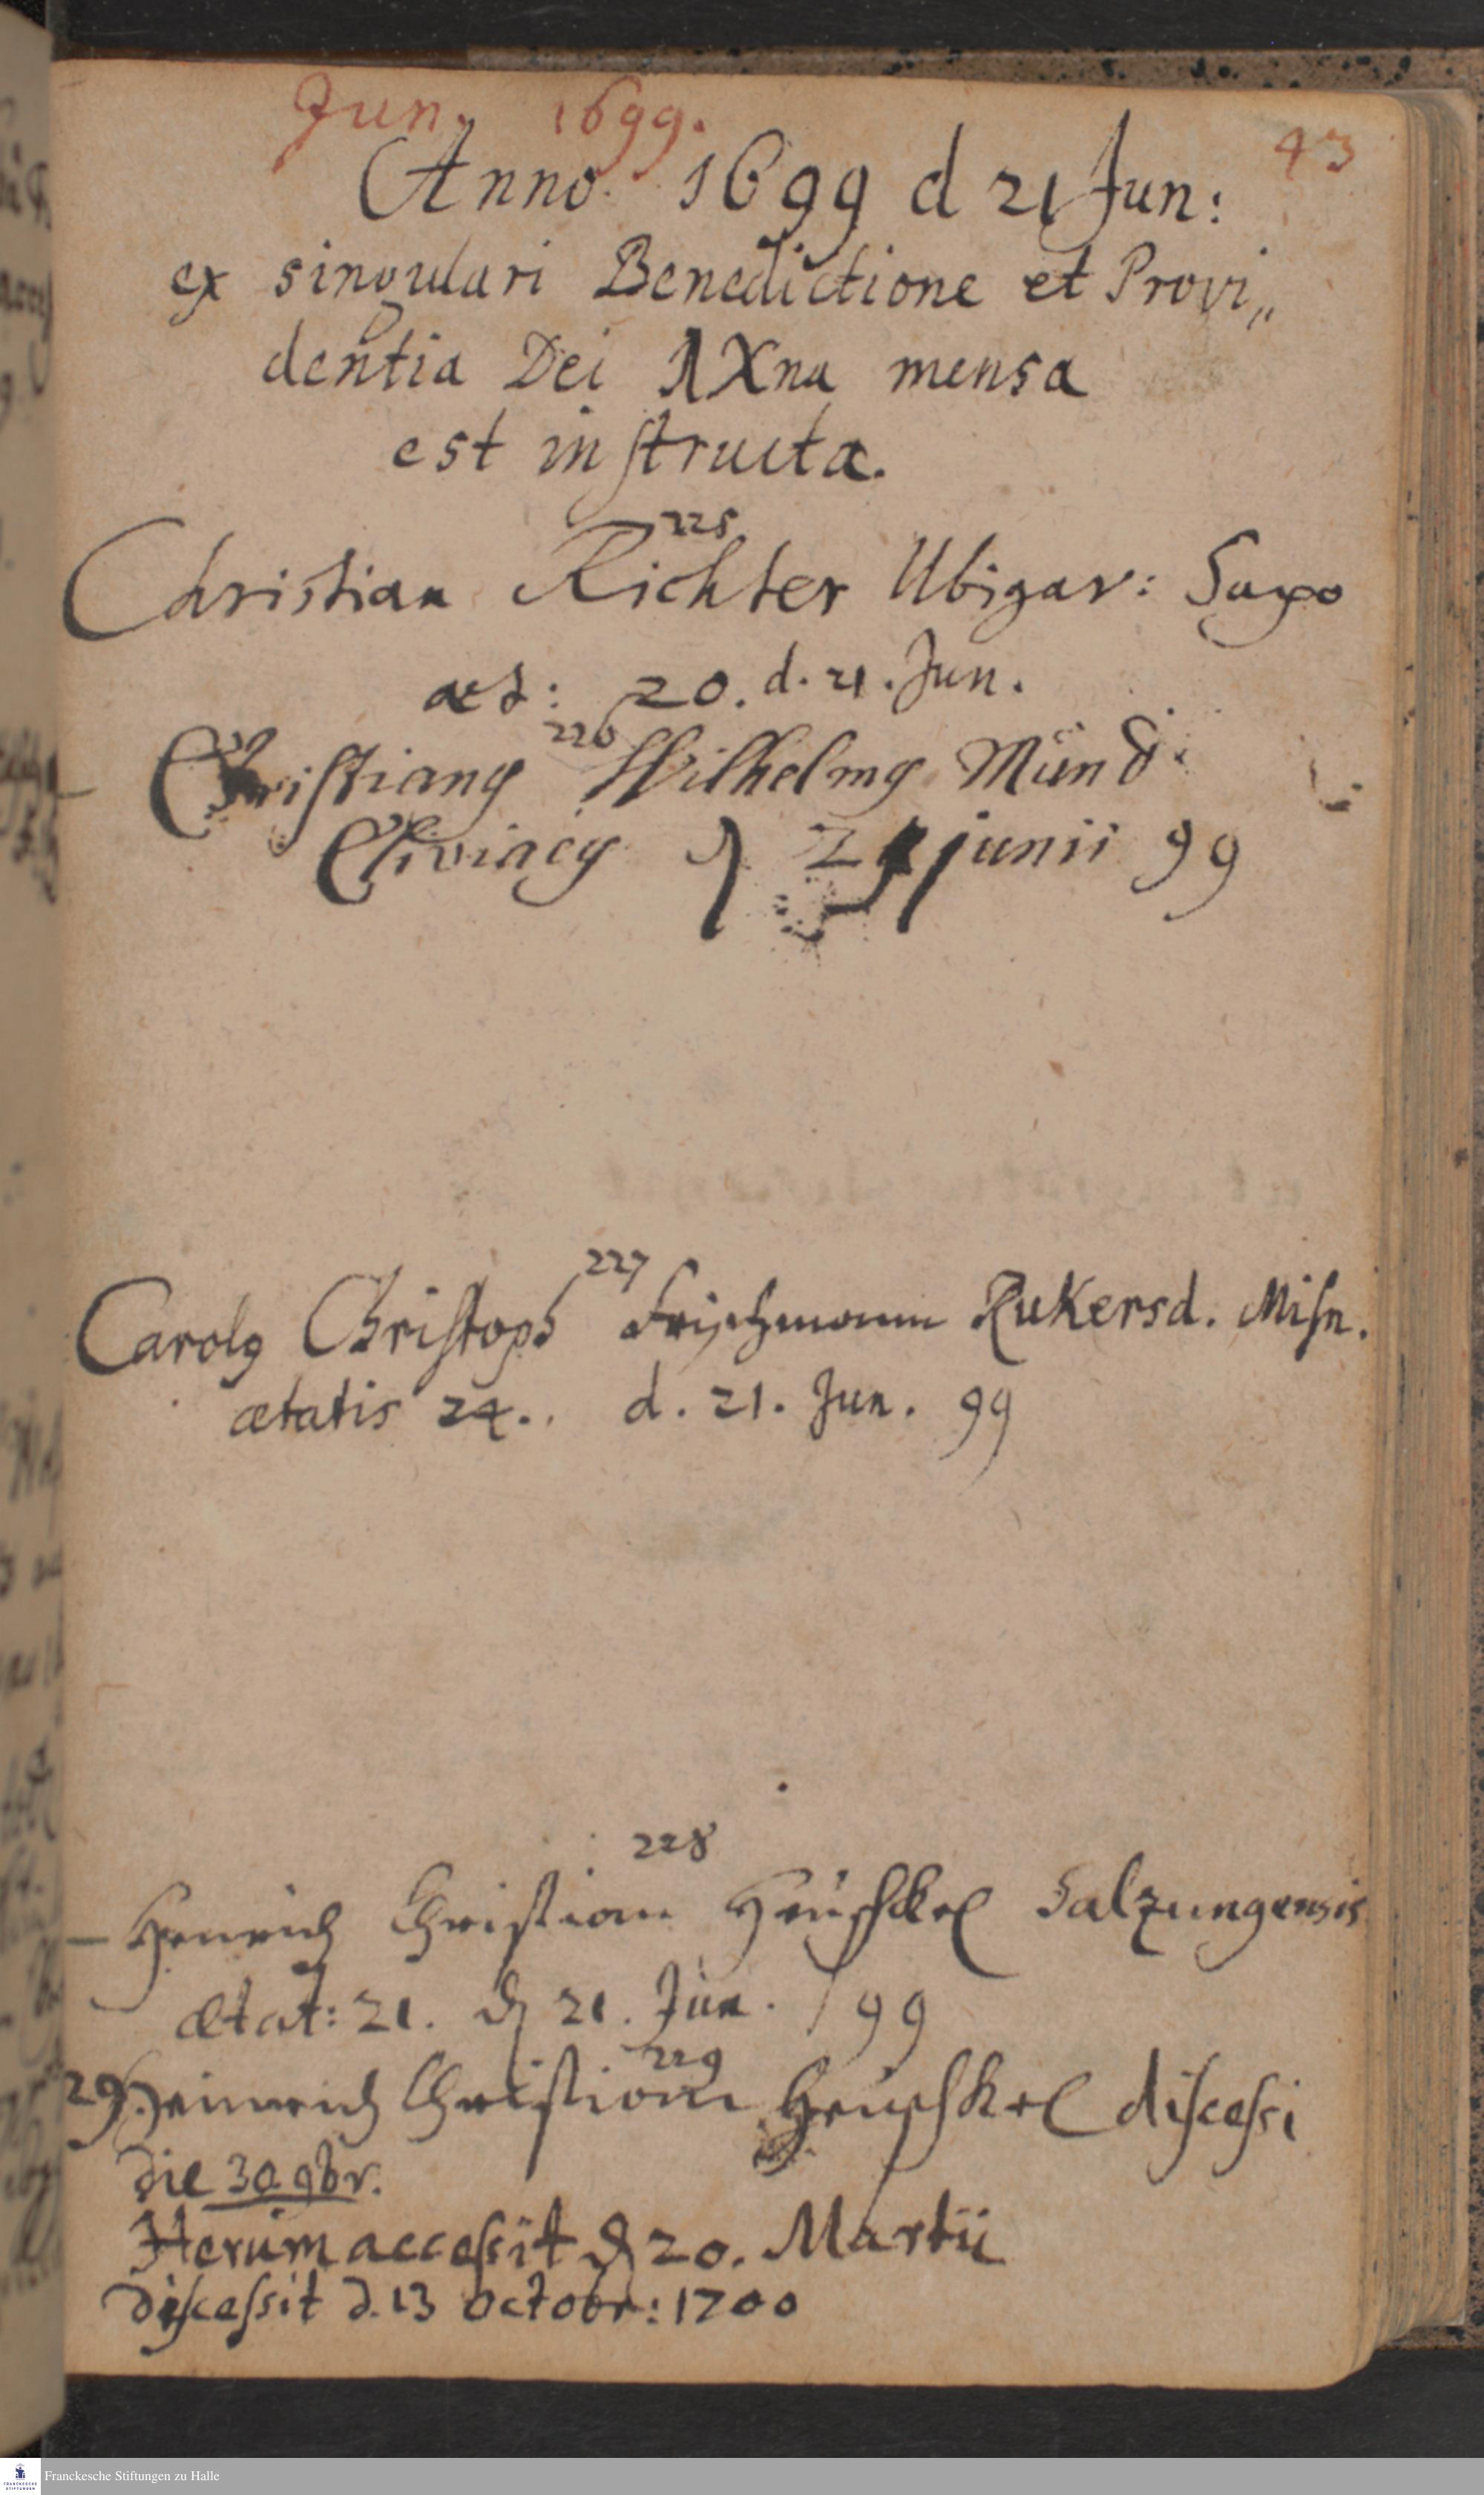 Jun. 1699.
43
Anno 1699 d 21 Jun:
ex singulari Benedictione et Provi„
dentia Dei IXna mensa
est instructa.
225
Christian Richter Ubigav: Saxo
aet: 20. d. 21. Jun.
226
Christianus Wilhelmus Münd
Cliviacus d 21 junii 99
227
Carolus Christoph Frischmann Rukersd. Misn.
ætatis 24. d. 21. Jun. 99
228
Henrich Christian Heuschkel Salzungensis
Ætat: 21. d 21. Jun. 99
229
29. Heinrich Christian Heuschkel discessi
die 30 9br.
Iterum accessit d 20. Martii
discessit d. 13 Octobr: 1700
FRANCKESCHE STIFTUNGEN
Franckesche Stiftungen zu Halle